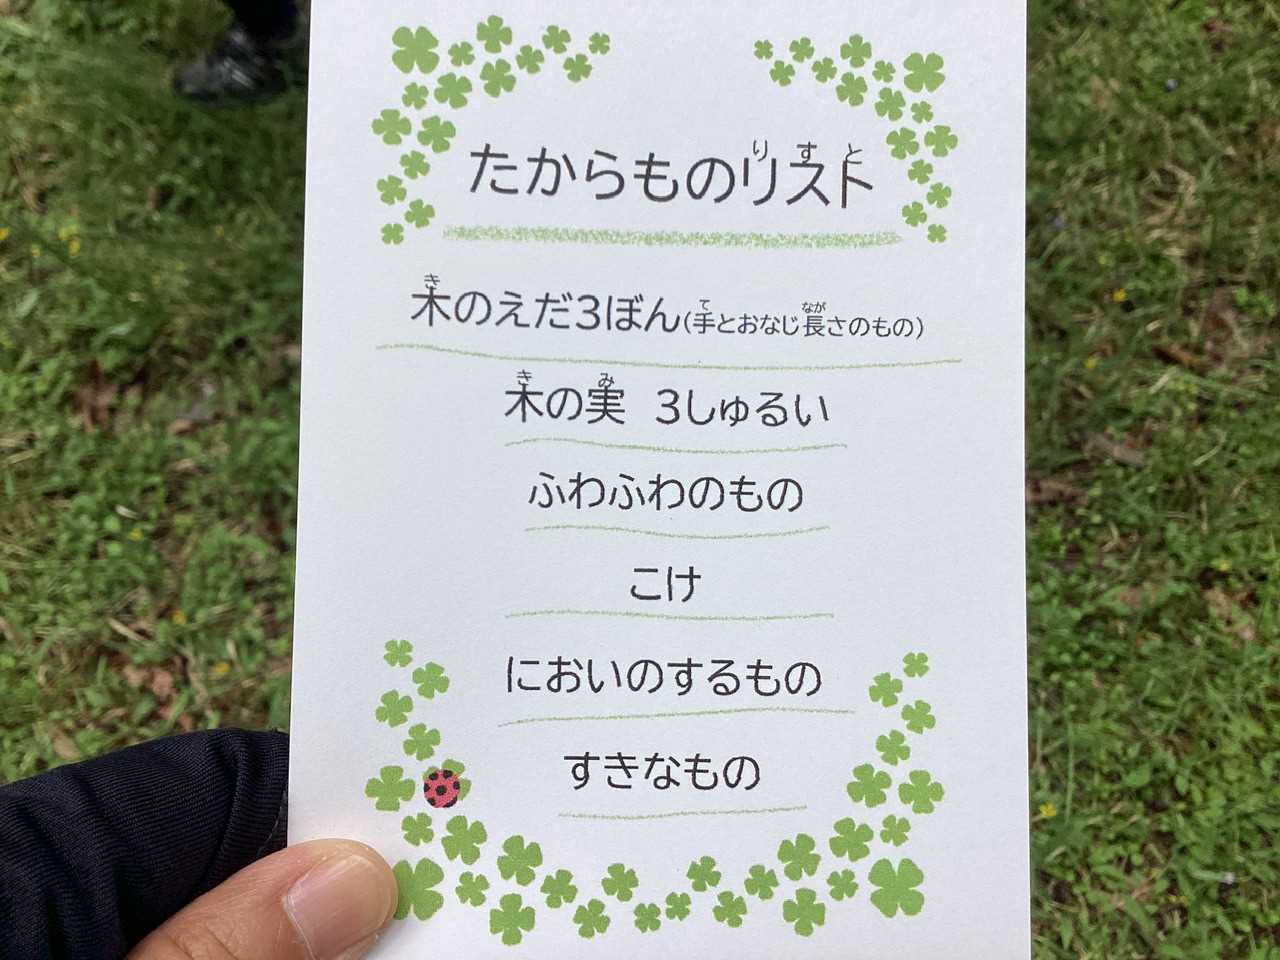 たからものリスト
木のえだ3ぼん(手とおなじ長さのもの)
木の実 3しゅるい
ふわふわのもの
こけ
においのするもの
すきなもの